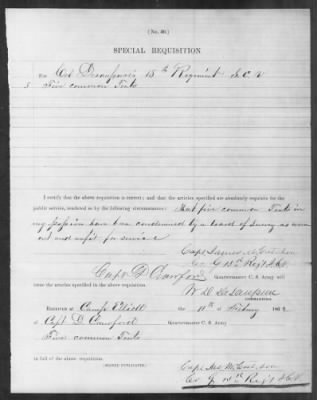 (No. 40.)
SPECIAL REQUISITION
For Col 15th Regiment S. C. V
5 Five common Tents
I certify that the above requisition is correct; and that the articles specified are absolutely requisite for the
public service, rendered so by the following circumstances: That five common Tents in
my possession have been condemned by a board of survey as worn
out and unfit for service
Capt
Co G 15th Regt S.C.V.
Capt D Crawford QUARTERMASTER C. S. Army will
issue the articles specified in the above requisition.
W. D. DeSaussure
COMMANDING.
RECEIVED at Camp Elliott the 11th of Febuary 186
of Capt D. Crawford QUARTERMASTER C. S. Army,
Five common Tents
in full of the above requisition.
(SIGNED DUPLICATES.)
Capt Jas
Co G 15th Regt S.C.V.